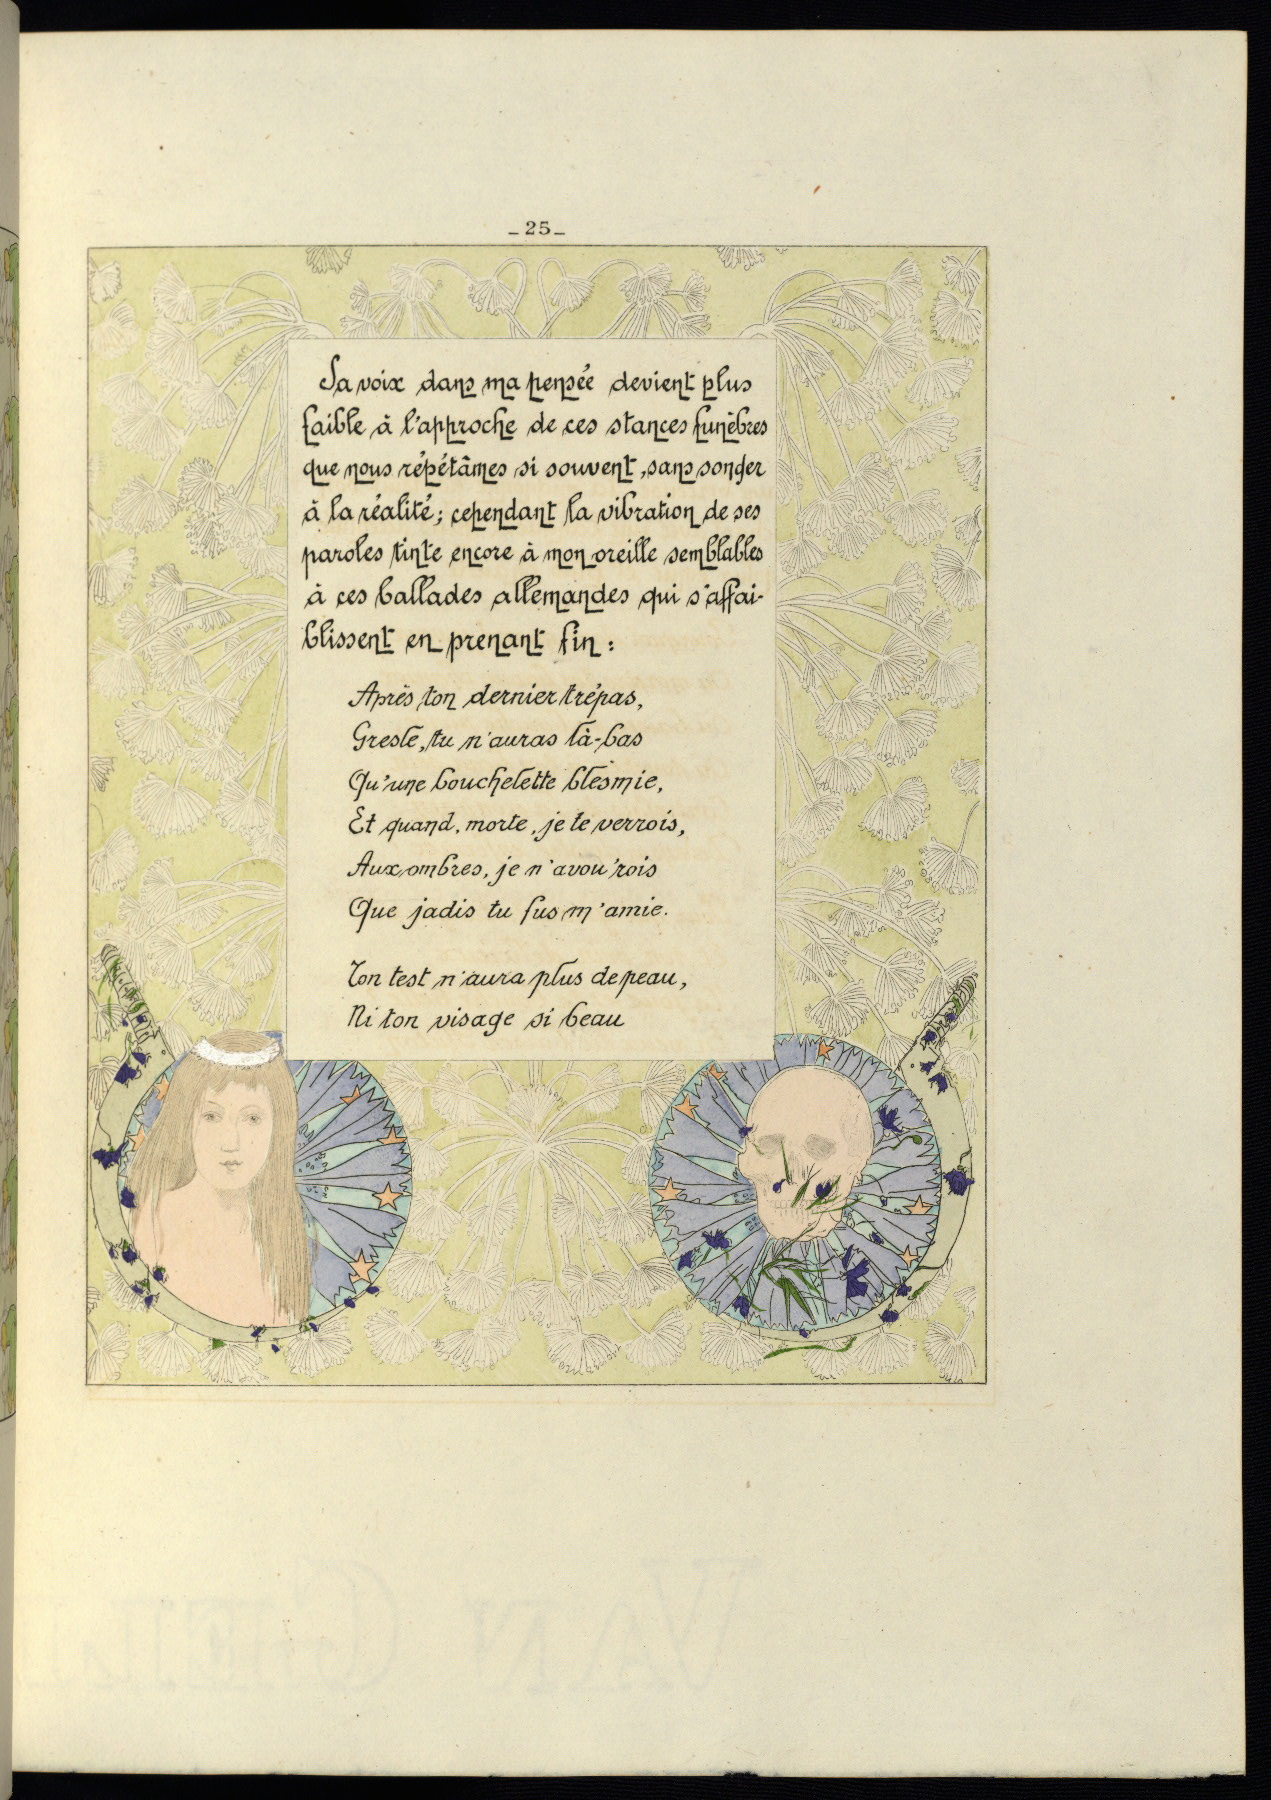 _25_
Sa voix dans ma pensée devient plus
faible à l'approche de ces stances funèbres
que nous répétâmes si souvent, sans songer
à la réalité; cependant la vibration de ses
paroles tinte encore à mon oreille semblables
à ces ballades allemandes qui s'affai-
blissent en prenant fin :
Après ton dernier trépas,
Gresle, tu n'auras là-bas
Qu'une bouchelette blesmie,
Et quand, morte, je te verrois,
Aux ombres, je n'avou'rois
Que jadis tu fus m'amie.
Ton test n'aura plus de peau,
Ni ton visage si beau